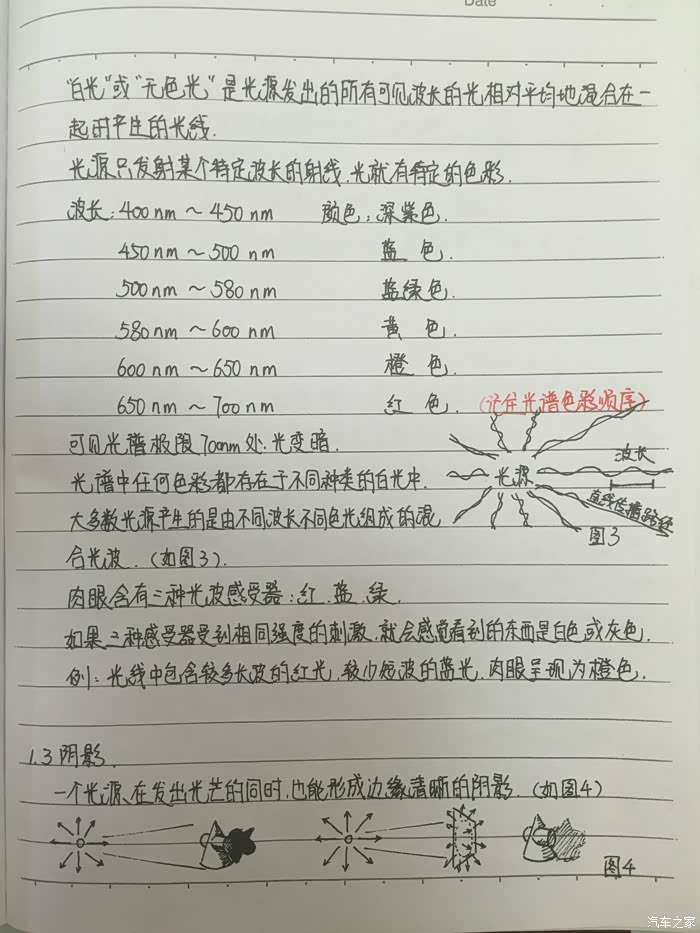 Date
"白光"或"无色光"是光源发出的所有可见波长的光相对平均地混合在一
起时产生的光线.
光源只发射某个特定波长的射线.光就有特定的色彩.
波长:400nm～450nm 颜色:深紫色.
450nm～500nm 蓝色.
500nm～580nm 蓝绿色.
580nm～600nm 黄色.
600nm～650nm 橙色.
650nm～700nm 红色.(记住光谱色彩顺序)
可见光谱极限700nm处.光变暗.
光谱中任何色彩都存在于不同种类的白光中.
大多数光源产生的是由不同波长不同色光组成的混
合光波.(如图3).
光源
波长
直线传播路径
图3
肉眼含有三种光波感受器:红.蓝.绿.
如果三种感受器受到相同强度的刺激.就会感觉看到的东西是白色或灰色.
例:光线中包含较多长波的红光,较少短波的蓝光.肉眼呈现为橙色.
1.3阴影.
一个光源、在发出光芒的同时,也能形成边缘清晰的阴影.(如图4)
图4
汽车之家